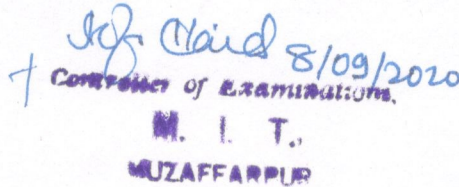 8/09/2020
Controller of Examinations.
M. I. T.,
MUZAFFARPUR